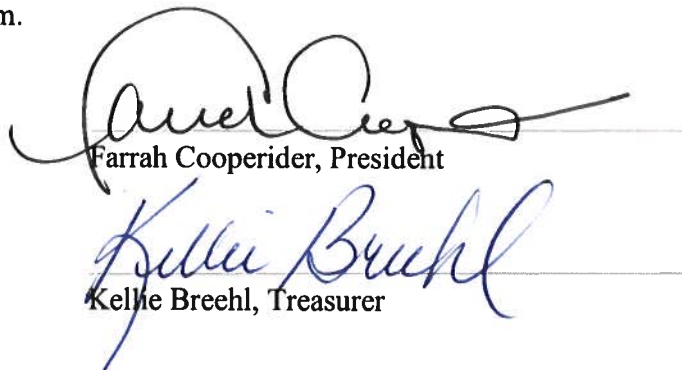 m.
Farrah Cooperider, President
Kellie Breehl
Kellie Breehl, Treasurer